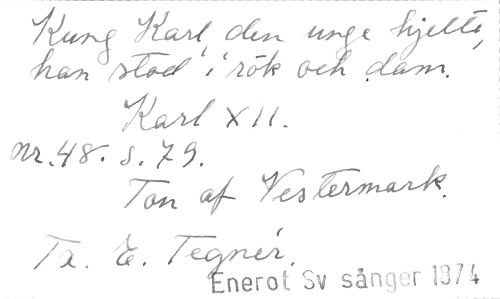 Kung Karl, den unge hjelte,
han stod i rök och dam.
Karl XII.
nr. 48. s. 79.
Ton af Vestermark.
Tx. E. Tegnér.
Enerot Sv sånger 1874